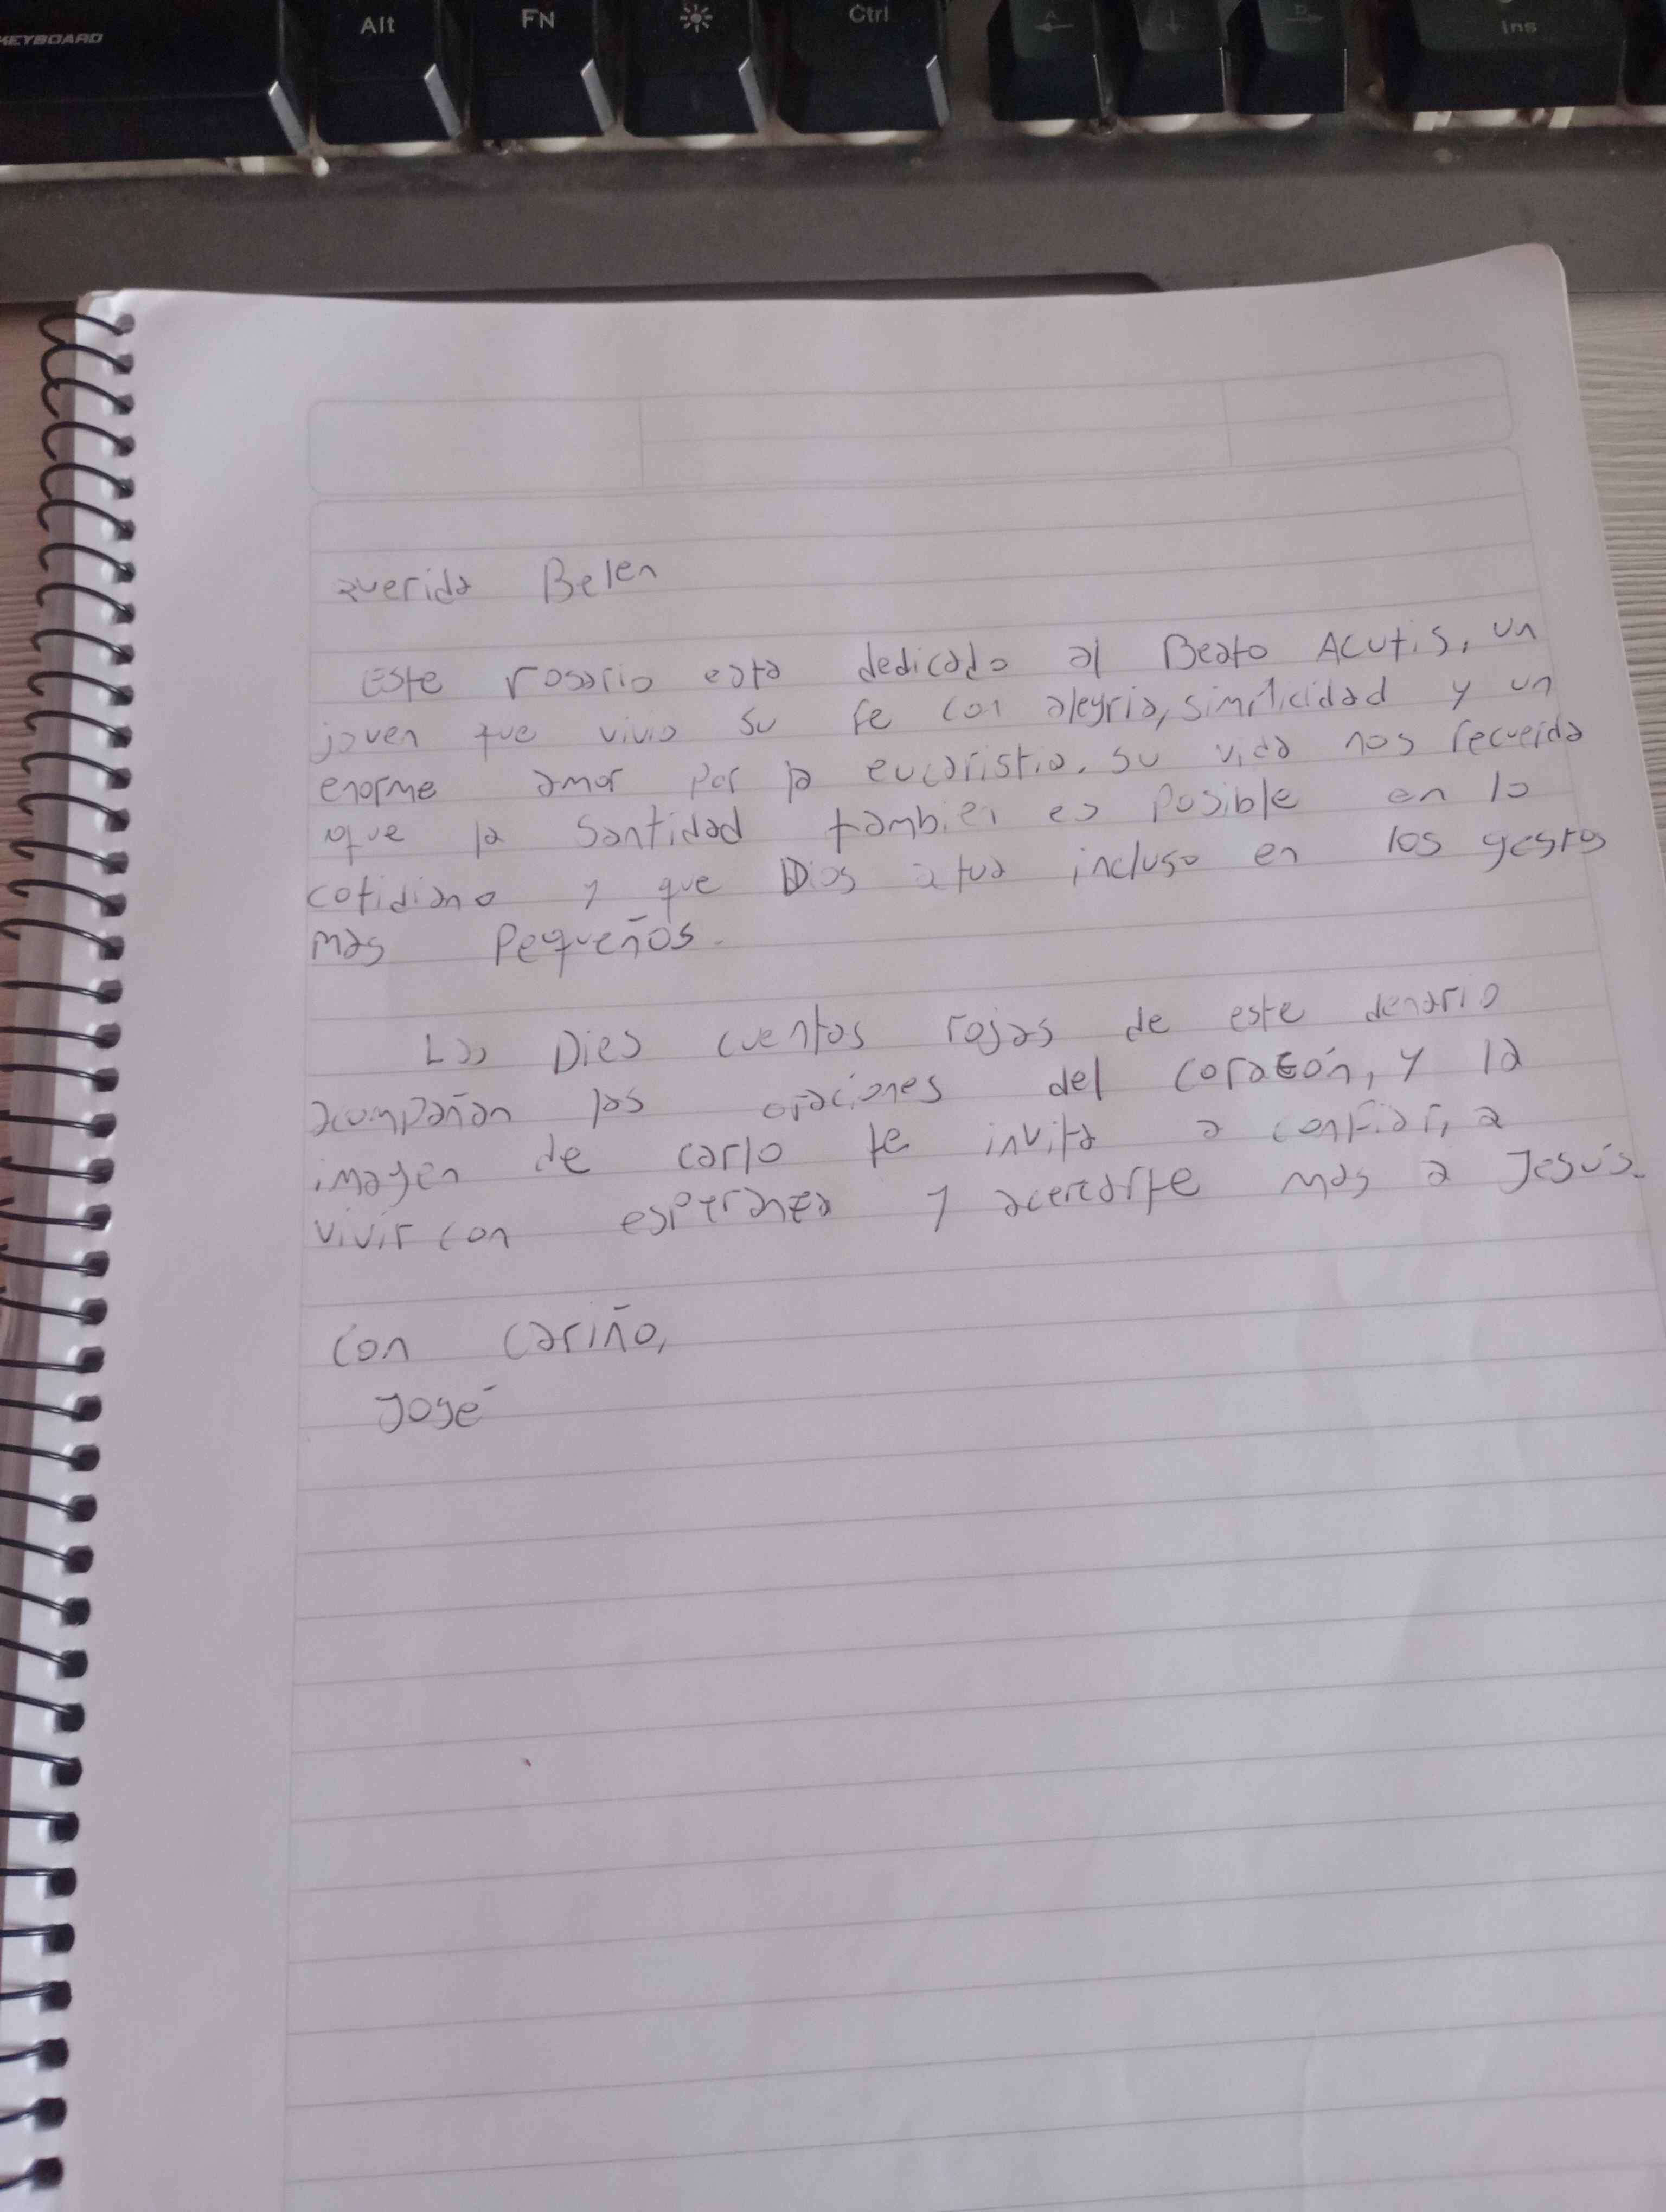 KEYBOARD Alt FN Ctrl A D Ins
querida Belen
Este rosario esta dedicado al Beato Acutis, un
joven que vivio su fe con alegria, simplicidad y un
enorme amor por la eucaristia. su vida nos recuerda
que la santidad tambien es posible en lo
cotidiano y que Dios atua incluso en los gestos
mas pequeños.
Las Dies cuentas rojas de este denario
acompañan las oraciones del corazón, y la
imagen de carlo te invita a confiar, a
vivir con esperanza y acercarte mas a Jesús.
con cariño,
José